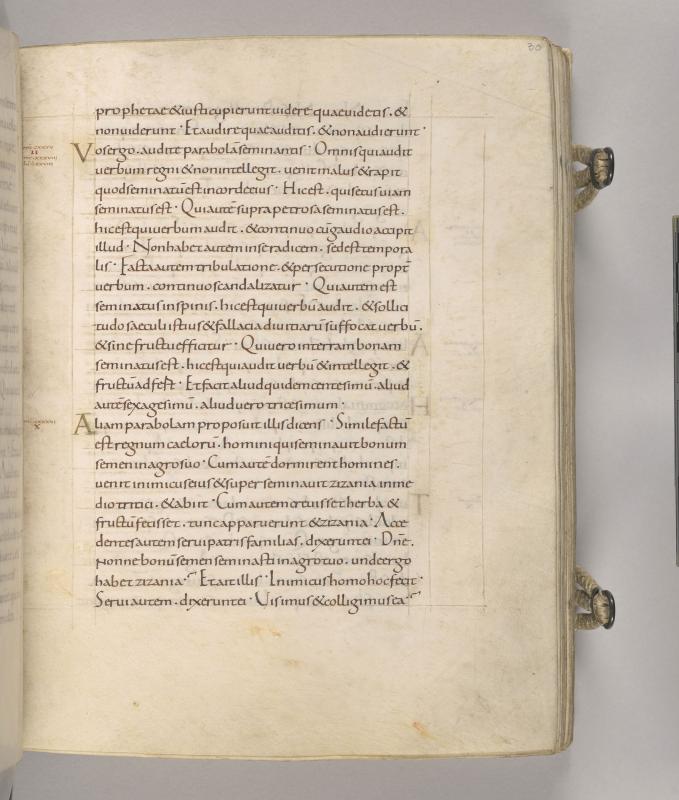 30
prophetae & iusti cupierunt uidere quae uidetis . &
non uiderunt · Et audire quae auditis . & non audierunt ·
Vos ergo . audite parabolā seminantis · Omnis qui audit
uerbum regni & non intellegit . uenit malus & rapit
quod seminatū est in corde eius · Hic est . qui secus uiam
seminatus est · Qui autē supra petrosa seminatus est .
hic est qui uerbum audit . & continuo cū gaudio accipit
illud · Non habet autem in se radicem . sed est tempora
lis · Facta autem tribulatione . & persecutione propt̄
uerbum . continuo scandalizatur · Qui autem est
seminatus in spinis . hic est qui uerbū audit . & sollici
tudo saeculi istius & fallacia diuitiarū suffocat uerbū .
& sine fructu efficitur · Qui uero in terram bonam
seminatus est . hic est qui audit uerbū & intellegit . &
fructū adfert · Et facit aliud quidem centesimū . aliud
autē sexagesimū . aliud uero tricesimum ·
Aliam parabolam proposuit illis dicens · Simile factū
est regnum caelorū . homini qui seminauit bonum
semen in agro suo · Cum autē dormirent homines .
uenit inimicus eius & superseminauit zizania in me
dio tritici . & abiit · Cum autem creuisset herba &
fructū fecisset . tunc apparuerunt & zizania · Acce
dentes autem serui patris familias . dixerunt ei · Dn̄e .
Nonne bonū semen seminasti in agro tuo . unde ergo
habet zizania · Et ait illis · Inimicus homo hoc fecit ·
Serui autem . dixerunt ei · Uis imus & colligimus ea